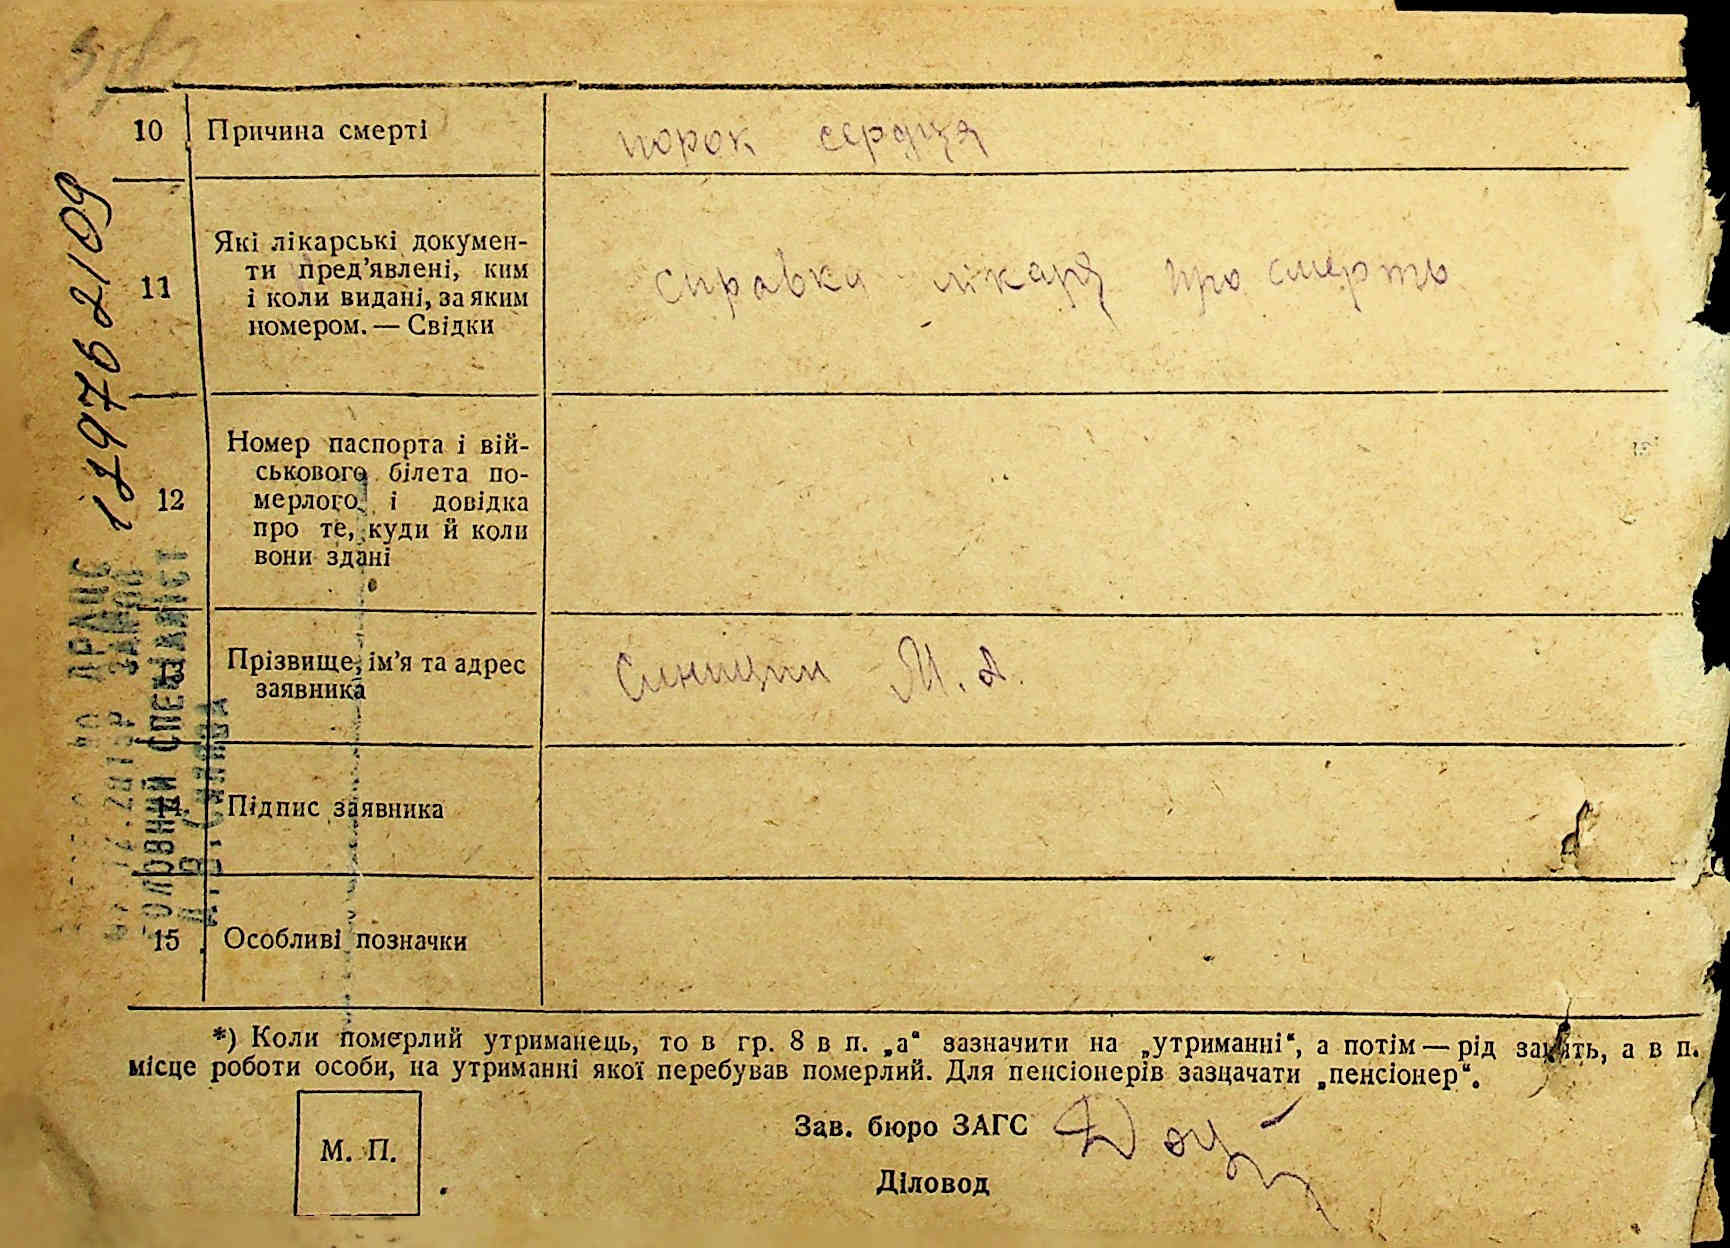 10 Причина смерті порок сердця
Які лікарські докумен-
ти пред’явлені, ким
11 і коли видані, за яким справка лікаря про смерть
номером. — Свідки
Номер паспорта і вій-
ськового білета по-
12 мерлого, і довідка
про те, куди й коли
вони здані
13 Прізвище, ім’я та адрес
заявника
М. А.
14 Підпис заявника
15 Особливі позначки
*) Коли померлий утриманець, то в гр. 8 в п. „а“ зазначити на „утриманні“, а потім — рід занять, а в п.
місце роботи особи, на утриманні якої перебував померлий. Для пенсіонерів зазначати „пенсіонер“.
Зав. бюро ЗАГС
М. П.
Діловод
ГОЛОВНИЙ СПЕЦІАЛІСТ